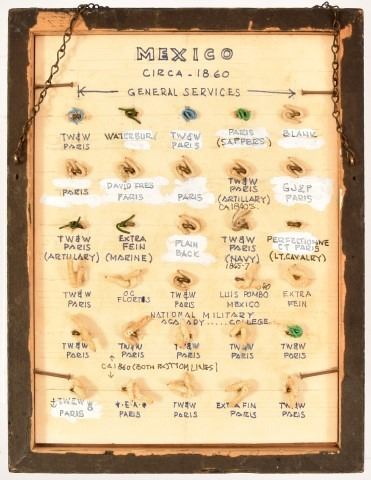 MEXICO
CIRCA - 1860
GENERAL SERVICES
TW&W PARIS
WATERBURY
TW&W PARIS
PARIS (SAPPERS)
BLANK
PARIS
DAVID FRES PARIS
PARIS
TW&W PARIS (ARTILLARY) CA 1840'S
GJ&P PARIS
TW&W PARIS (ARTILLARY)
EXTRA FEIN (MARINE)
PLAIN BACK
TW&W PARIS (NAVY)
PERFECTIONNE CT PARIS (LT. CAVALRY)
TW&W PARIS
TW&W PARIS
LUIS POMBO MEXICO
EXTRA FEIN
NATIONAL MILITARY
COLLEGE
TW&W PARIS
TW&W PARIS
TW&W PARIS
TW&W PARIS
TW&W PARIS
CA 1860 (BOTH BOTTOM LINES)
TW&W PARIS
E A
TW&W PARIS
EXTRA FIN PARIS
TW&W PARIS